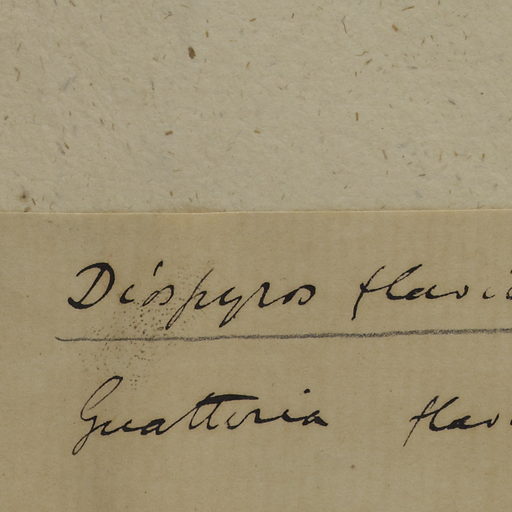 Diospyros flavi
Guatteria flav